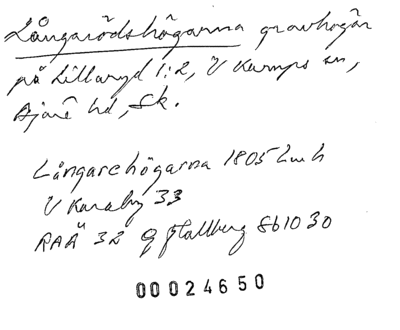 Långarödshögarna gravhögar
på Lillaryd 1:2, V Karups sn,
Bjäre hd, Sk.
Långarehögarna 1805 Lmh
V Karaby 33
RAÄ 32 G Hallberg 861030
00024650